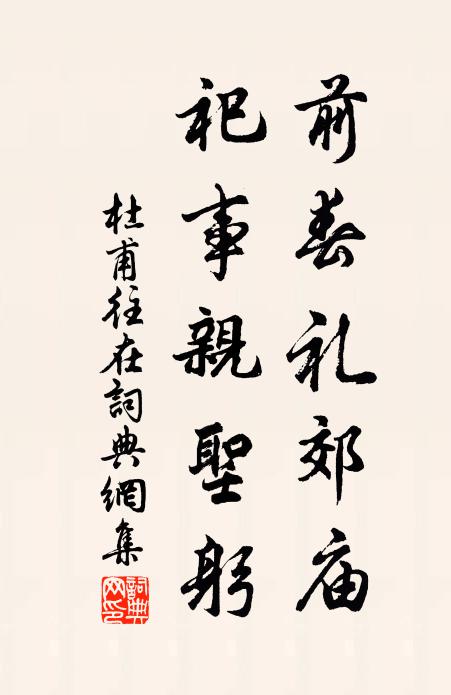 前春礼郊庙
祀事親聖躬
杜甫往在詞典網集